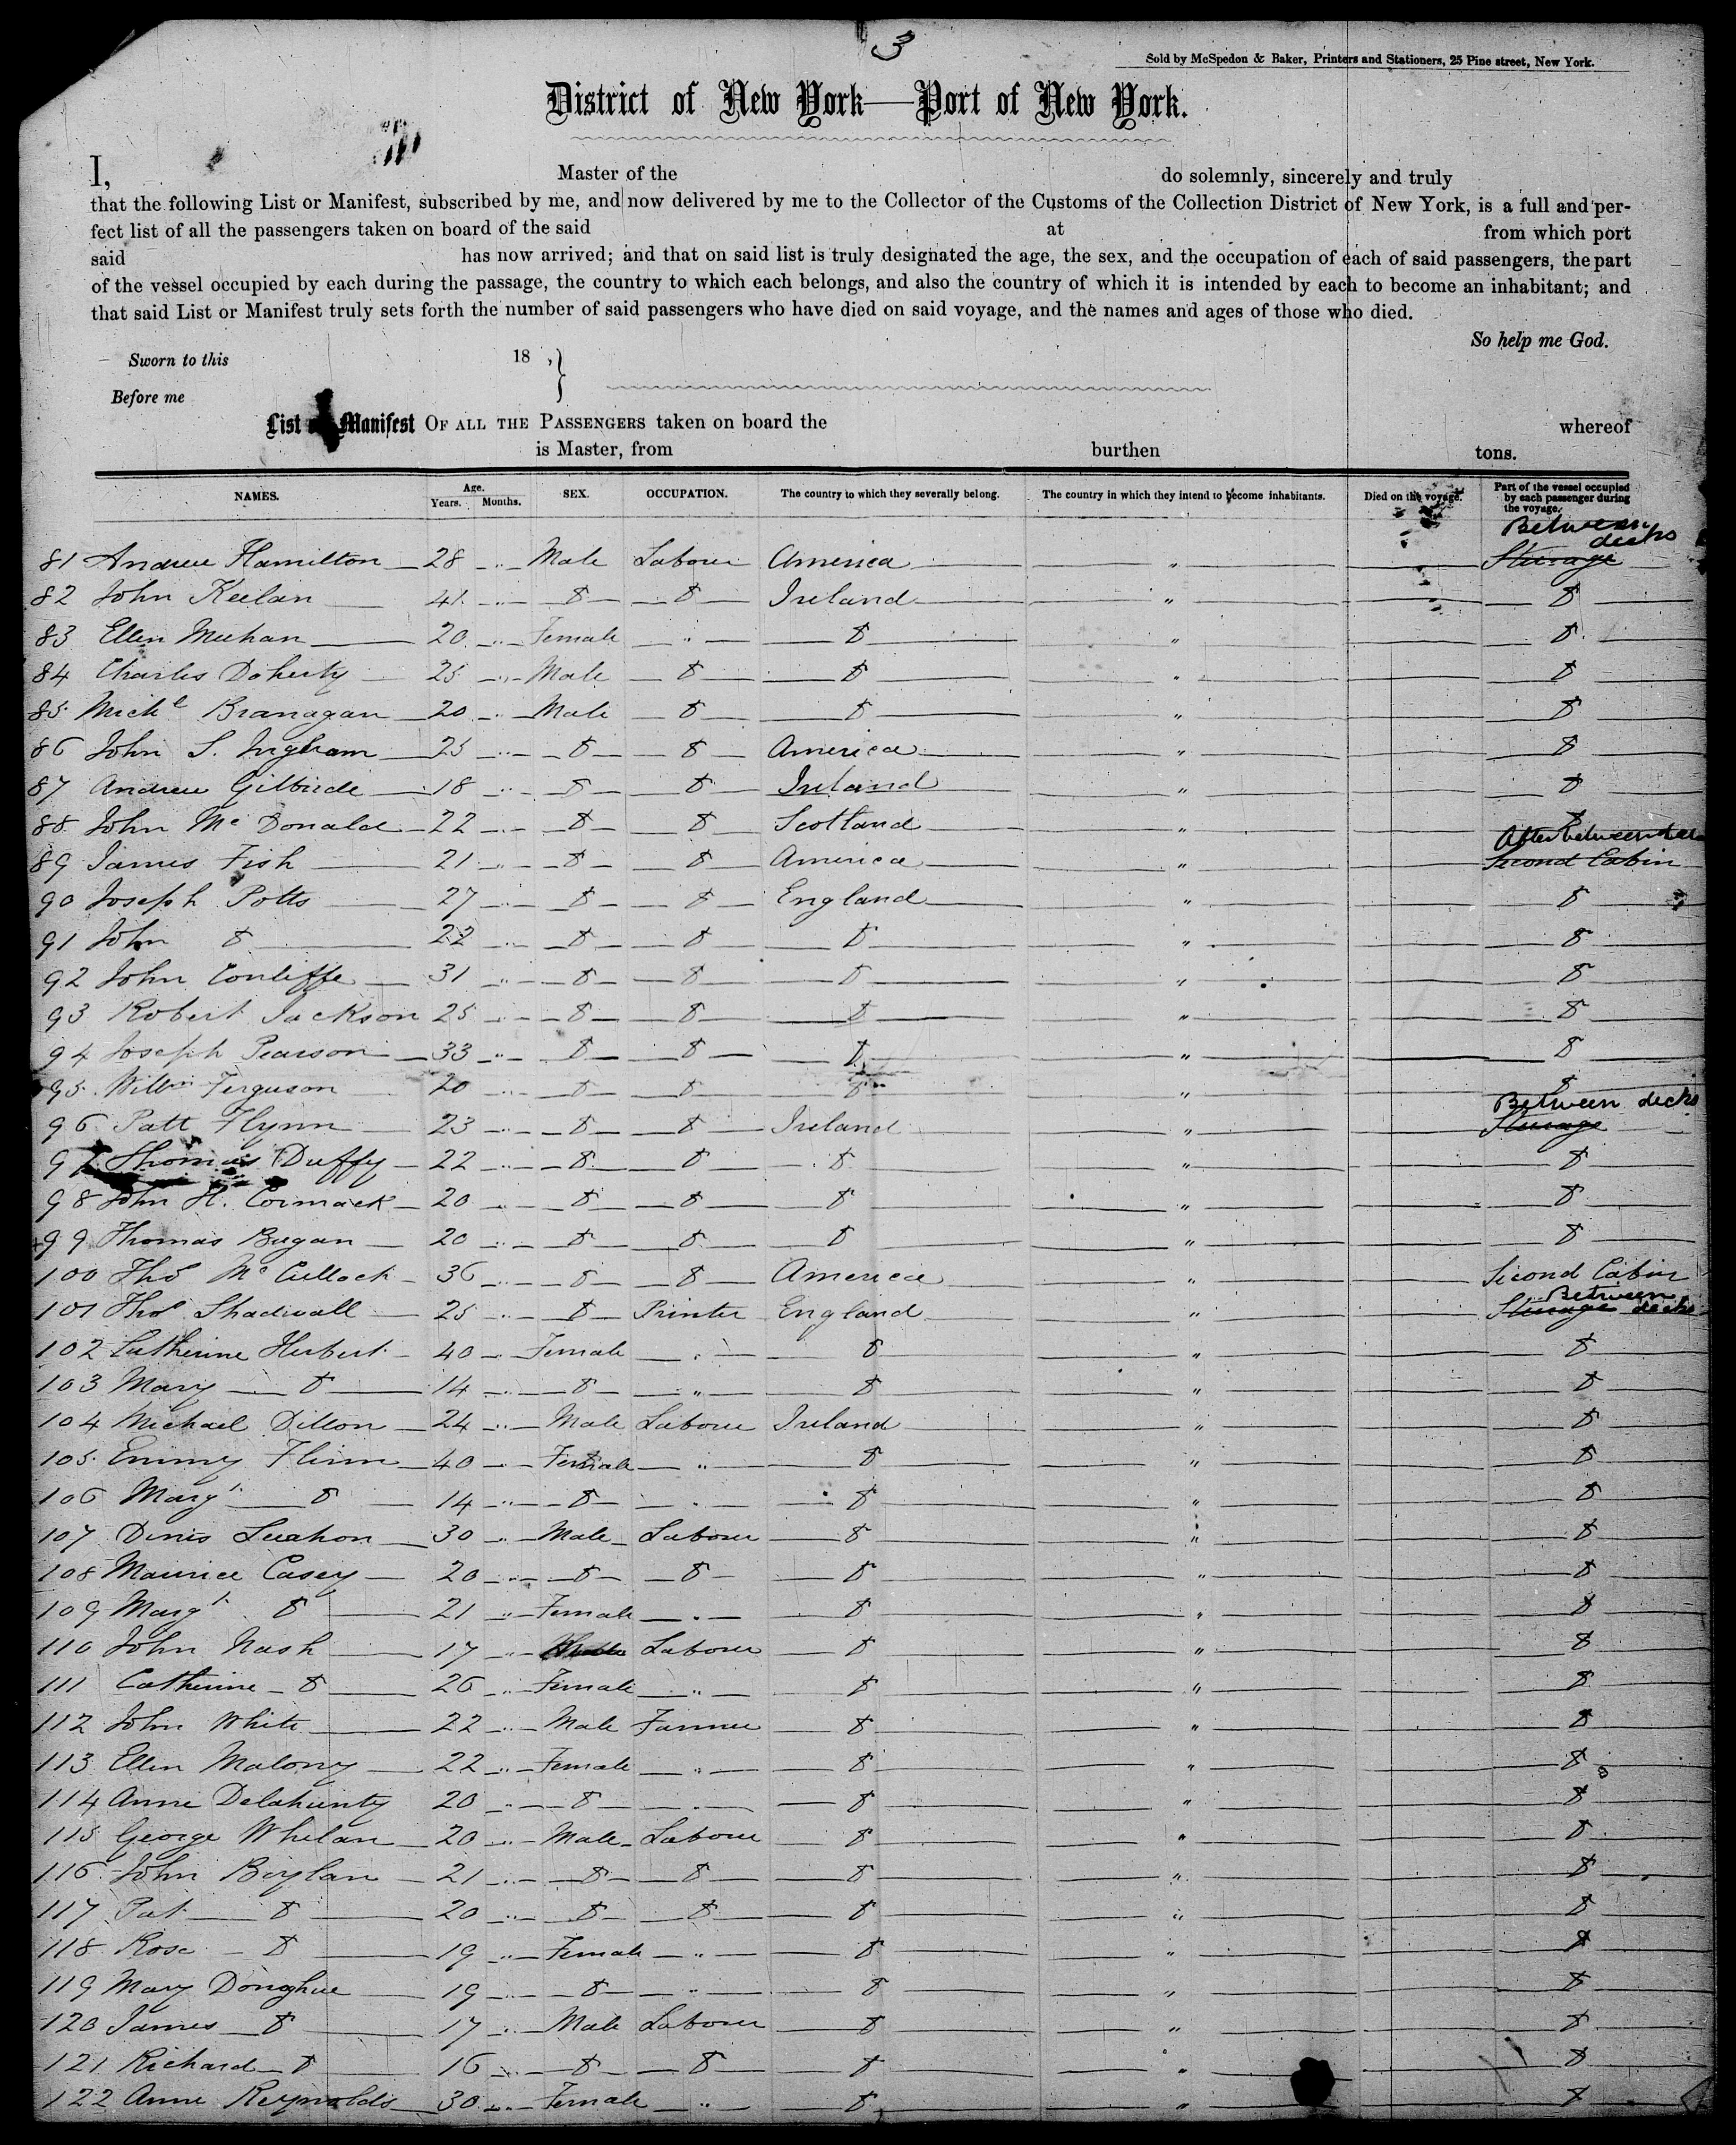 3
Sold by McSpedon & Baker, Printers and Stationers, 25 Pine street, New York.
District of New York—Port of New York.
I, Master of the do solemnly, sincerely and truly
that the following List or Manifest, subscribed by me, and now delivered by me to the Collector of the Customs of the Collection District of New York, is a full and per-
fect list of all the passengers taken on board of the said at from which port
said has now arrived; and that on said list is truly designated the age, the sex, and the occupation of each of said passengers, the part
of the vessel occupied by each during the passage, the country to which each belongs, and also the country of which it is intended by each to become an inhabitant; and
that said List or Manifest truly sets forth the number of said passengers who have died on said voyage, and the names and ages of those who died.
So help me God.
Sworn to this 18 ,}
Before me
List Manifest OF ALL THE PASSENGERS taken on board the whereof
is Master, from burthen tons.
NAMES. Age. Years. Months. SEX. OCCUPATION. The country to which they severally belong. The country in which they intend to become inhabitants. Died on the voyage. Part of the vessel occupied by each passenger during the voyage.
Between decks
81 Andrew Hamilton 28 " Male Labourer America " Steerage
82 John Keelan 41 " do do Ireland " do
83 Ellen Meehan 20 " Female " do " do
84 Charles Doherty 25 " Male do do " do
85 Michl Branagan 20 " Male do do " do
86 John S. Ingham 25 " do do America " do
87 Andrew Gilbride 18 " do do Ireland " do
88 John McDonald 22 " do do Scotland " do
After between decks
89 James Fish 21 " do do America " Second Cabin
90 Joseph Potts 27 " do do England " do
91 John do 22 " do do do " do
92 John Conliffe 31 " do do do " do
93 Robert Jackson 25 " do do do " do
94 Joseph Pearson 33 " do do do " do
95 Willm Ferguson 20 " do do do " do
Between decks
96 Patt Flynn 23 " do do Ireland " Steerage
97 Thomas Duffy 22 " do do do " do
98 John H. Cormack 20 " do do do " do
99 Thomas Bugan 20 " do do do " do
100 Thos McCullock 36 " do do America " Second Cabin
101 Thos Shadwall 25 " do Printer England " Steerage Between decks
102 Catherine Herbert 40 " Female " do " do
103 Mary do 14 " do " do " do
104 Michael Dillon 24 " Male Labourer Ireland " do
105 Emmy Flinn 40 " Female " do " do
106 Margt do 14 " do " do " do
107 Dinis Leahon 30 " Male Labourer do " do
108 Maurice Casey 20 " do do do " do
109 Margt do 21 " Female " do " do
110 John Nash 17 " Male Labourer do " do
111 Catherine do 26 " Female " do " do
112 John White 22 " Male Farmer do " do
113 Ellen Malony 22 " Female " do " do
114 Anne Delahunty 20 " do " do " do
115 George Whelan 20 " Male Labourer do " do
116 John Boylan 21 " do do do " do
117 Pat do 20 " do do do " do
118 Rose do 19 " Female " do " do
119 Mary Donoghue 19 " do " do " do
120 James do 17 " Male Labourer do " do
121 Richard do 16 " do do do " do
122 Anne Reynolds 30 " Female " do " do